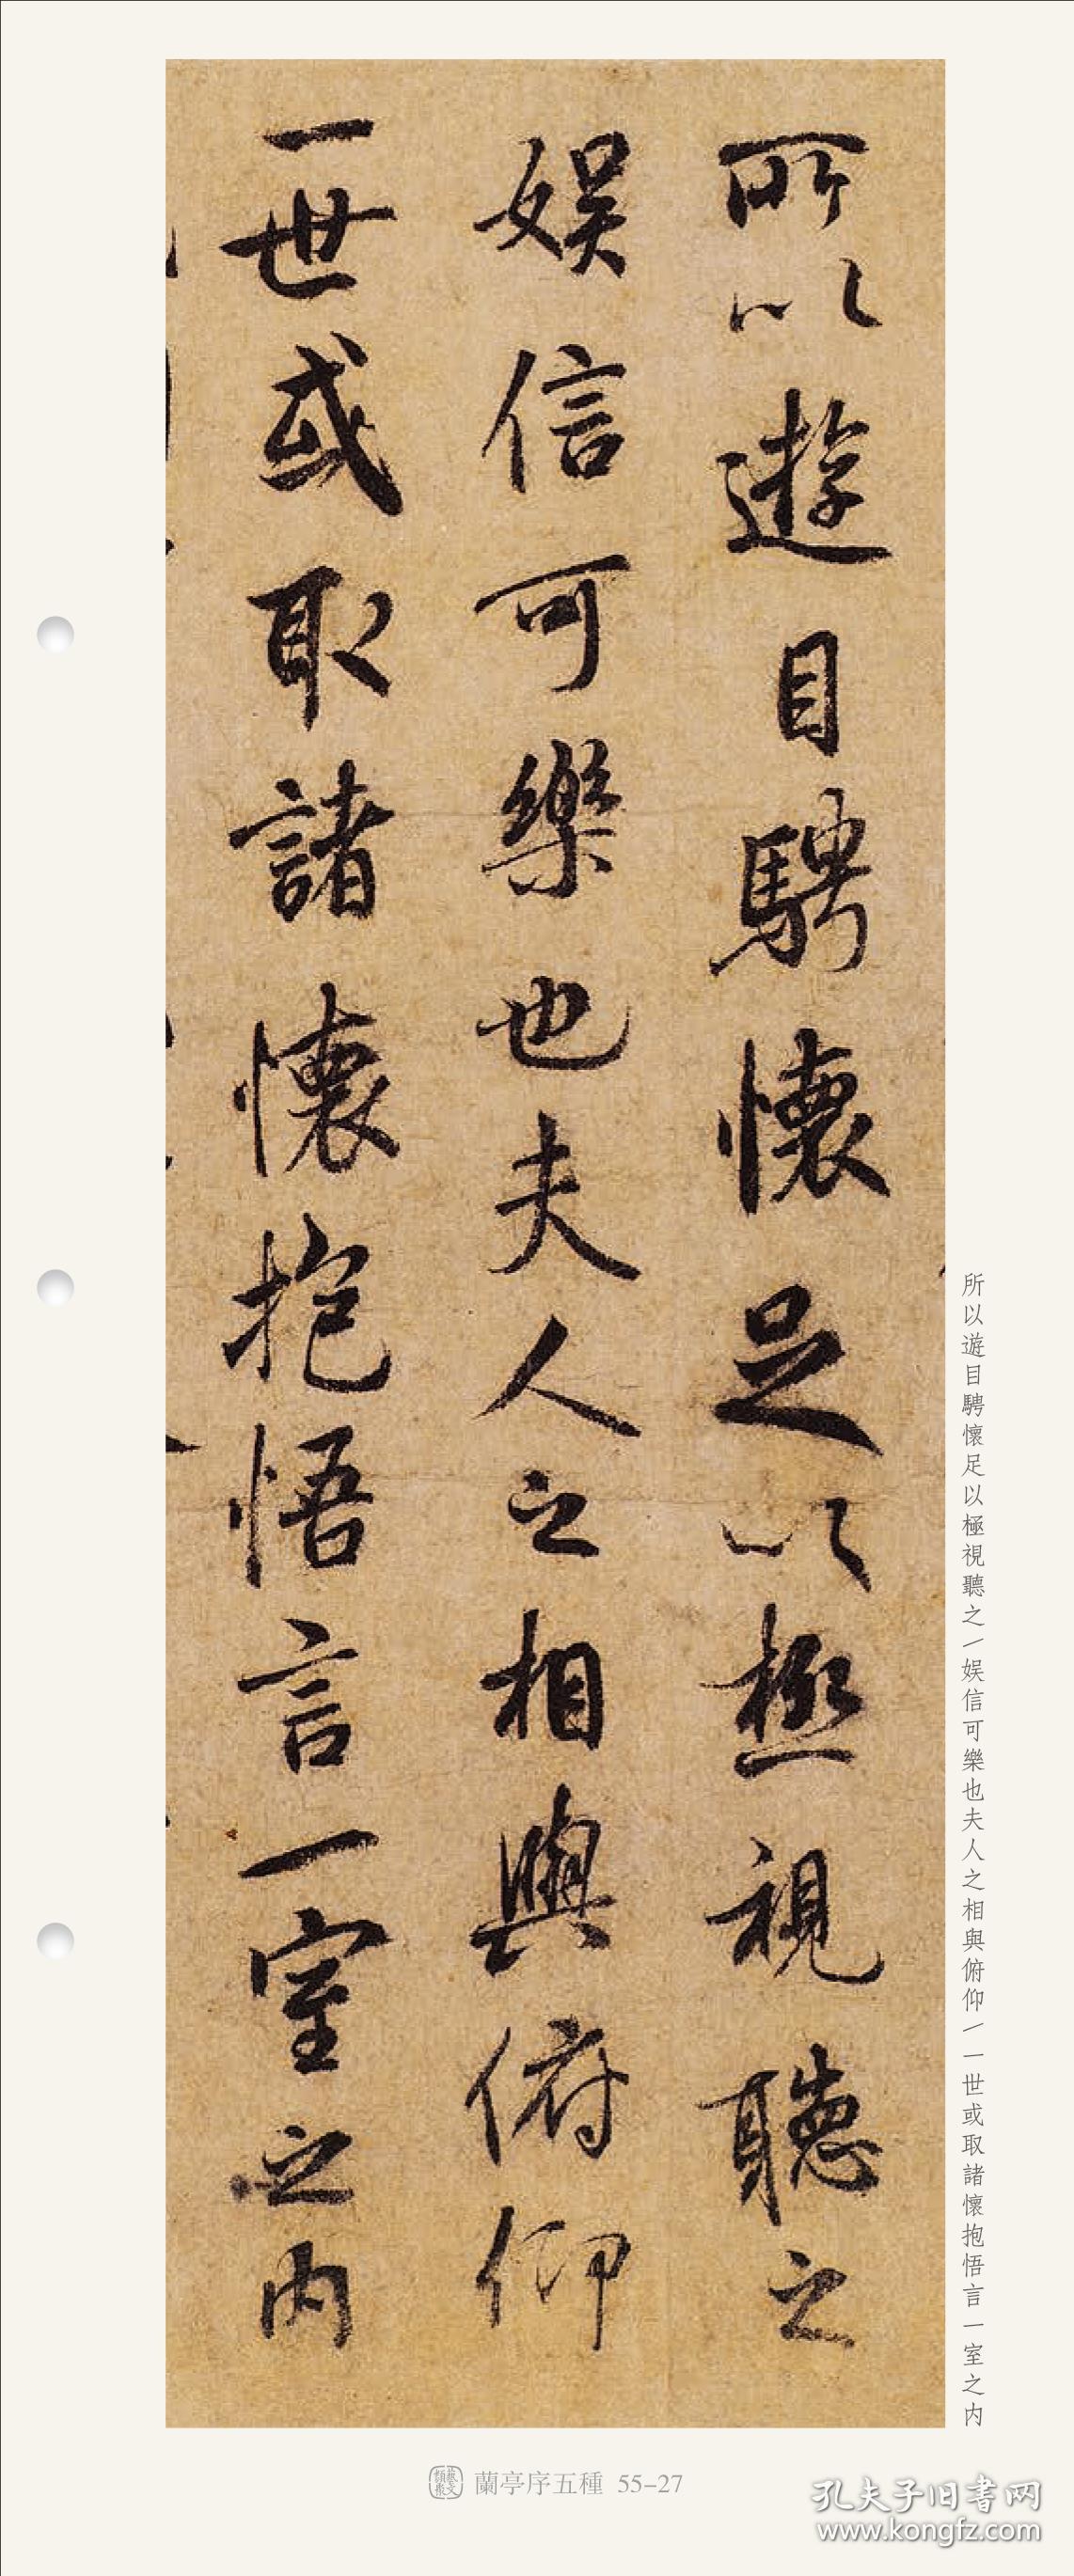 所以遊目騁懷足以極視聽之
娱信可樂也夫人之相與俯仰
一世或取諸懷抱悟言一室之内
所以遊目騁懷足以極視聽之/娱信可樂也夫人之相與俯仰/一世或取諸懷抱悟言一室之内
蘭亭序五種 55-27
孔夫子旧书网
www.kongfz.com